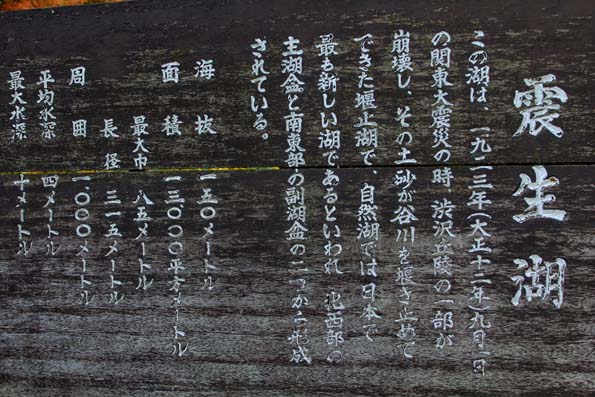 震生湖
この湖は、一九二三年(大正十二年)九月一日
の関東大震災の時 渋沢丘陵の一部が
崩壊し、その土砂が谷川を堰き止めて
できた堰止湖で、自然湖では日本で
最も新しい湖であるといわれ 北西部の
主湖盆と南東部の副湖盆の二つから形成
されている。
海抜 一五〇メートル
面積 一三〇〇〇平方メートル
最大巾 八五メートル
長径 三一五メートル
周囲 一、〇〇〇メートル
平均水深 四メートル
最大水深 十メートル